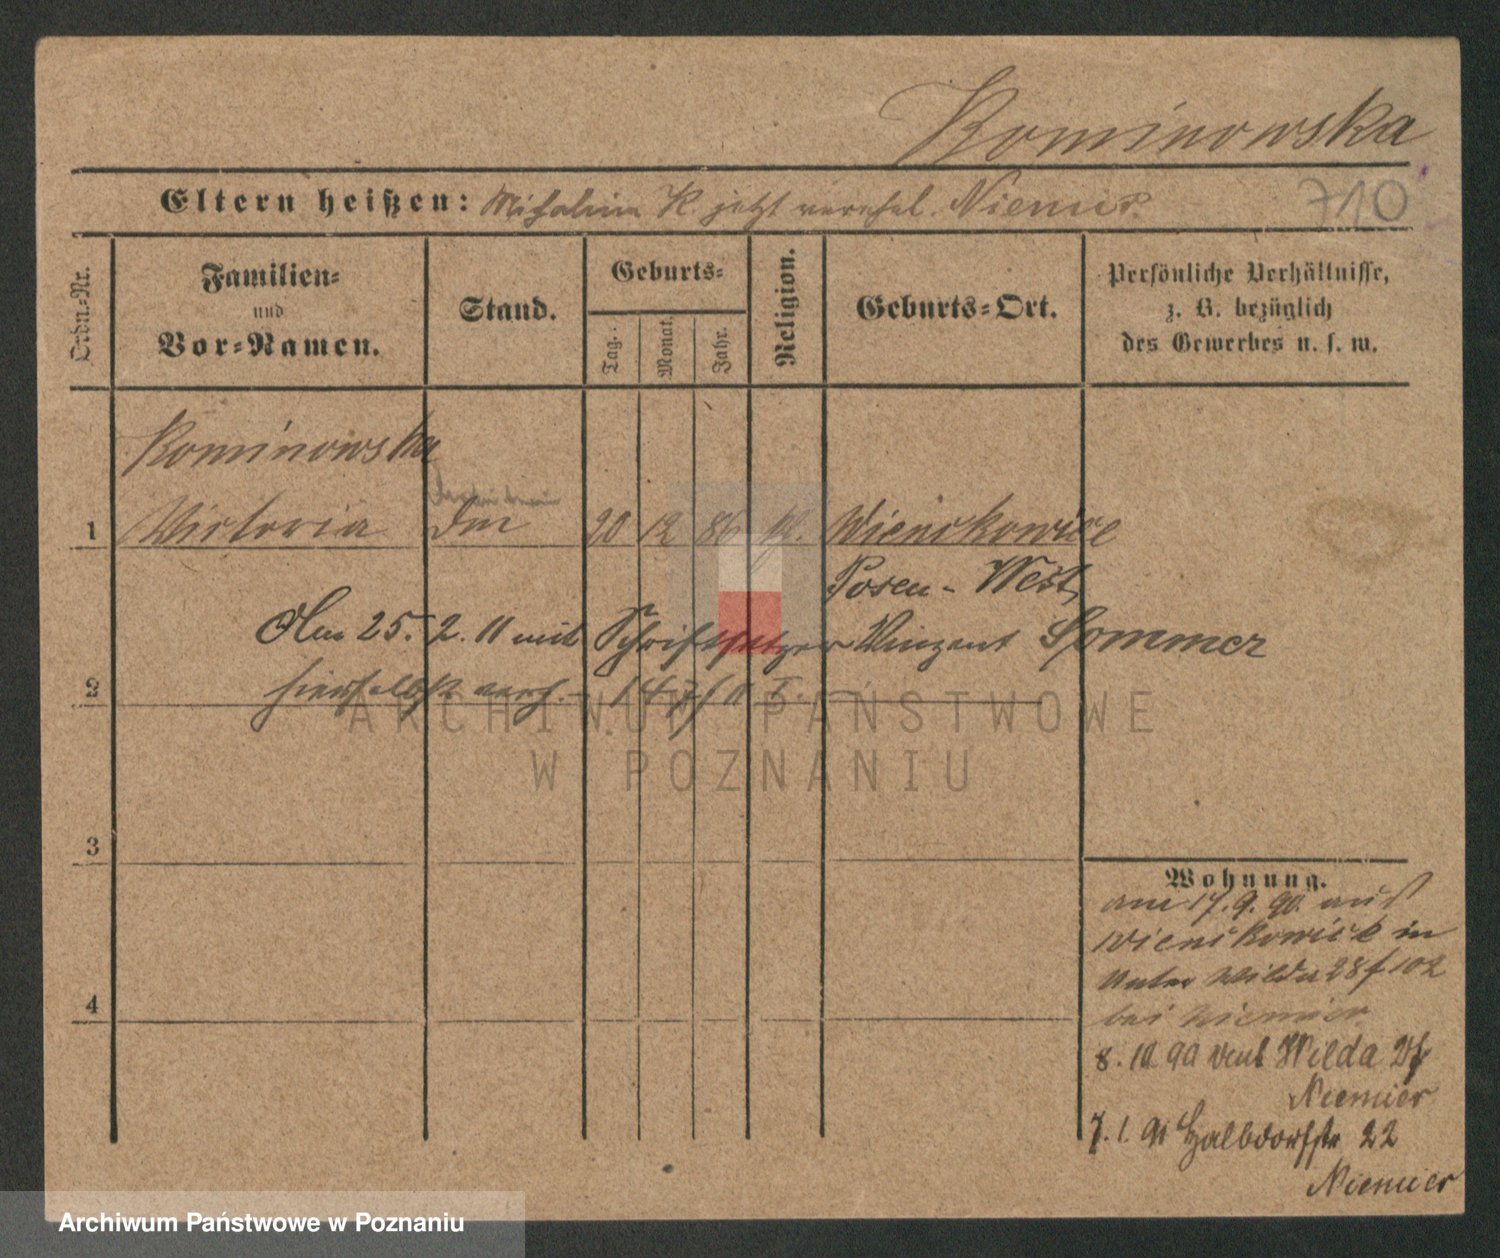 Kominowska
Eltern heißen: Michalina K. jetzt verehel. Niemir.
710
Ordn.-Nr.
Familien-
und
Vor-Namen.
Stand.
Geburts-
Tag.
Monat.
Jahr.
Religion.
Geburts-Ort.
Persönliche Verhältnisse,
z. B. bezüglich
des Gewerbes u. s. w.
Kominowska
1 Victoria 20 12 86 Wienckowice
Posen-West
Am 25. 2. 11 mit Schriftsetzer Vinzent Sommer
2 hierselbst verh.
3
4
Wohnung.
am 17. 9. 90. aus
Wienckowice in
Unter Wilda 28 f 102
bei Niemier
8. 10. 90 Wilda
Niemier
7. 1. 91 Halbdorfstr 22
Niemier
ARCHIWUM PAŃSTWOWE
W POZNANIU
Archiwum Państwowe w Poznaniu